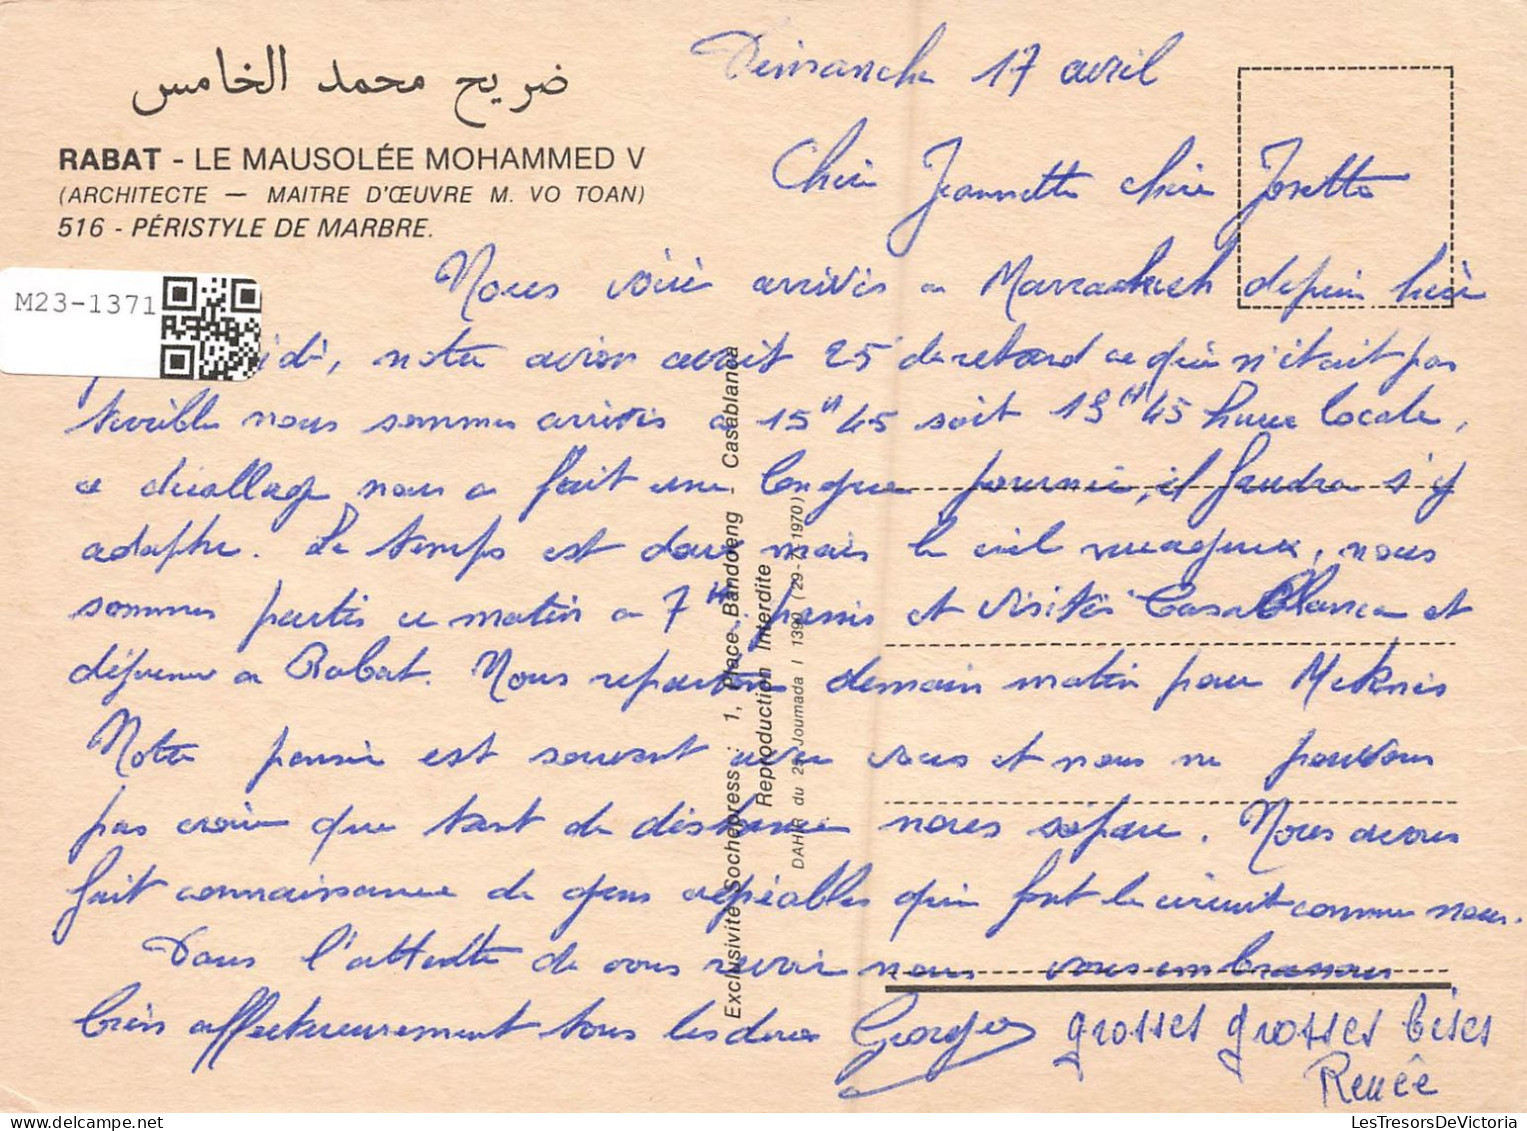 ضريح محمد الخامس
RABAT - LE MAUSOLÉE MOHAMMED V
(ARCHITECTE — MAITRE D'ŒUVRE M. VO TOAN)
516 - PÉRISTYLE DE MARBRE.
M23-1371
Dimanche 17 avril
Chère Jeannette chère Josette
Nous voici arrivés a Marrackech depuis hier
midi, notre avion avait 25' de retard ce qui n'était pas
terrible nous sommes arrivés a 15H45 soit 13H45 heure locale,
ce décallage nous a fait une longue journée, il faudra s'y
adapter. Le temps est doux mais le ciel nuageux, nous
sommes partis ce matin a 7H. et visités Casablanca et
déjeuner a Rabat. Nous repartons demain matin pour Meknes
Notre pensée est souvent avec vous et nous ne pouvons
pas croire que tant de distance nous sépare. Nous avons
fait connaissance de gens agréables qui font le circuit comme nous.
Dans l'attente de vous revoir nous vous embrassons
bien affectueusement tous les deux Georges grosses grosses bises
Renée
Exclusivité Sochepress : 1, Place Bandoeng - Casablanca
Reproduction Interdite
DAHIR du 25 Joumada I 1390 (29-7-1970)
LesTresorsDeVictoria.com